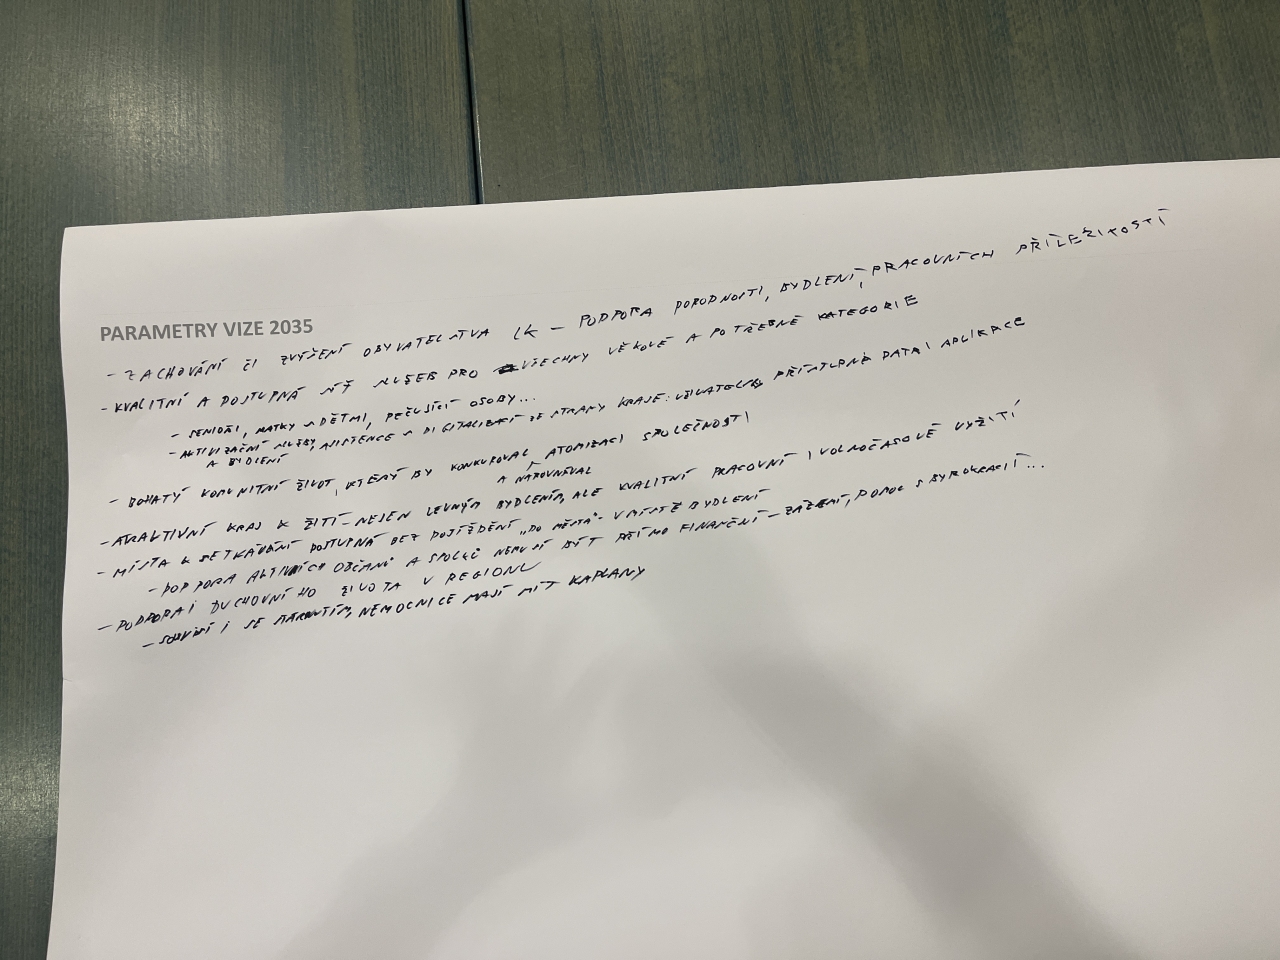 PARAMETRY VIZE 2035
- ZACHOVÁNÍ ČI ZVÝŠENÍ OBYVATELSTVA LK – PODPORA PORODNOSTI, BYDLENÍ, PRACOVNÍCH PŘÍLEŽITOSTÍ
- KVALITNÍ A DOSTUPNÁ SÍŤ SLUŽEB PRO VŠECHNY VĚKOVÉ A POTŘEBNÉ KATEGORIE
- SENIOŘI, MATKY S DĚTMI, PEČUJÍCÍ OSOBY...
- AKTIVIZAČNÍ SLUŽBY, ASISTENCE S DIGITALIZACÍ ZE STRANY KRAJE: UŽIVATELSKY PŘÍSTUPNÁ DATA I APLIKACE
A BYDLENÍ
- BOHATÝ KOMUNITNÍ ŽIVOT, KTERÝ BY KONKUROVAL ATOMIZACI SPOLEČNOSTI
A NAROVNÁVAL
- ATRAKTIVNÍ KRAJ K ŽITÍ – NEJEN LEVNÝM BYDLENÍM, ALE KVALITNÍ PRACOVNÍ I VOLNOČASOVÉ VYŽITÍ
- MÍSTA K SETKÁVÁNÍ DOSTUPNÁ BEZ DOJÍŽDĚNÍ „DO MĚSTA" - V MÍSTĚ BYDLENÍ
- PODPORA AKTIVNÍCH OBČANŮ A SPOLKŮ NEMUSÍ BÝT PŘÍMO FINANČNÍ – ZÁZEMÍ, POMOC S BYROKRACIÍ...
- PODPORA I DUCHOVNÍHO ŽIVOTA V REGIONU
- SOUVISÍ I SE STÁRNUTÍM, NEMOCNICE MAJÍ MÍT KAPLANY